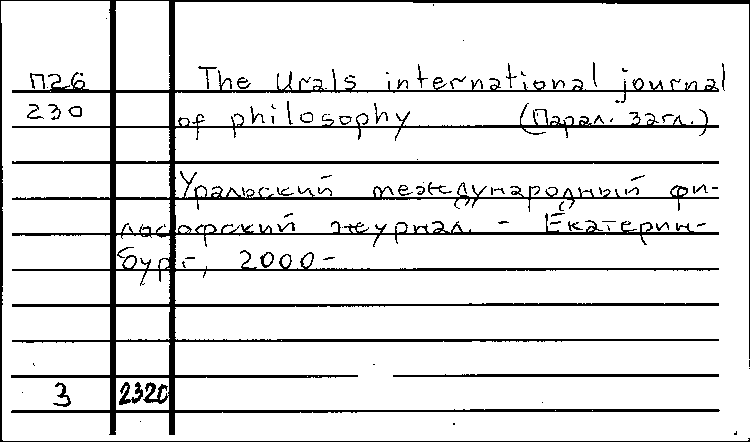 П26 The Urals international journal
230 of philosophy (Парал. загл.)
Уральский международный фи-
лософский журнал. - Екатерин-
бург, 2000-
3 2320